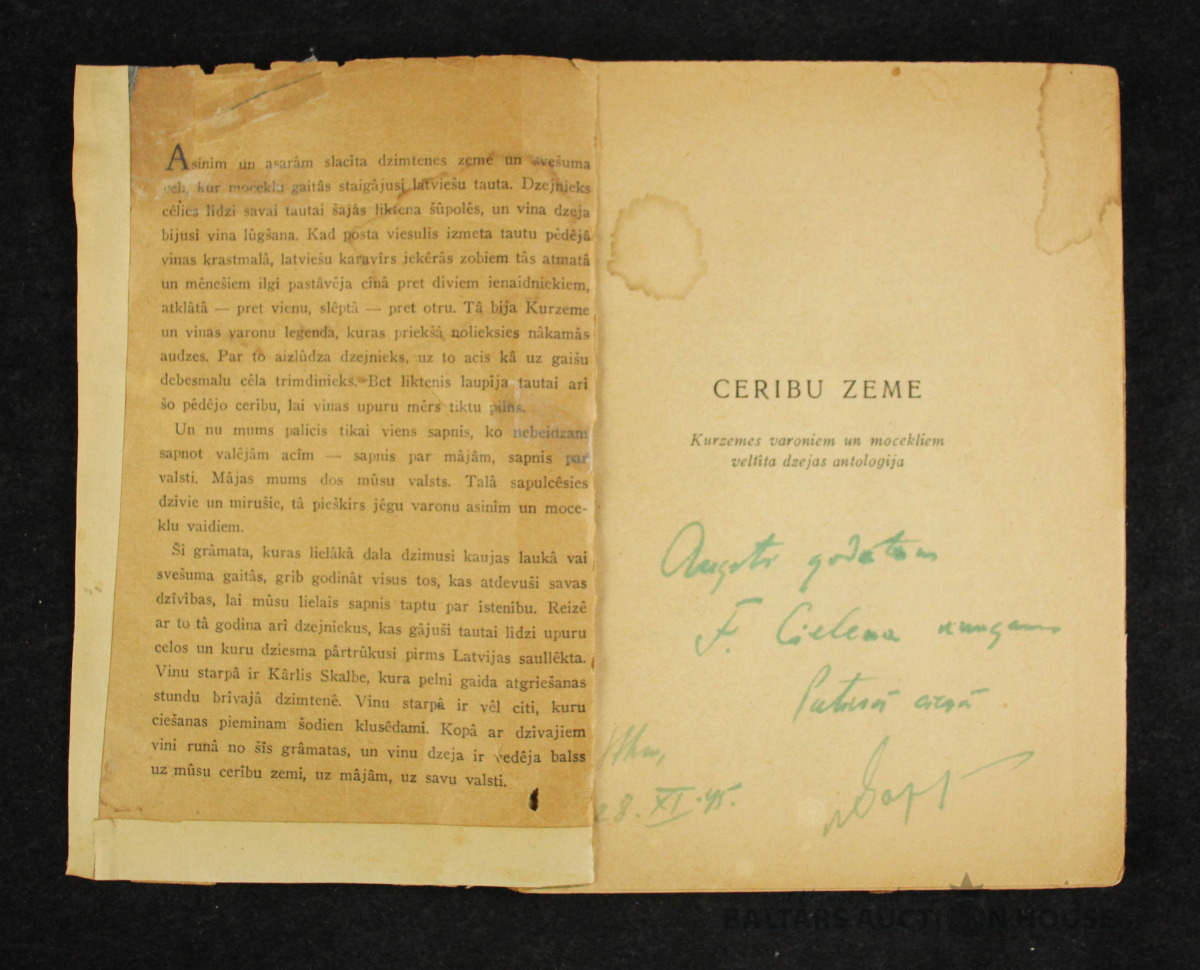 Asinîm un asarâm slacîta dzimtenes zeme un svešuma
celi, kur mocekla gaitâs staigâjusi latviešu tauta. Dzejnieks
cêlies lîdzi savai tautai šajâs liktena šûpolês, un vina dzeja
bijusi vina lûgšana. Kad posta viesulis izmeta tautu pêdêjâ
vinas krastmalâ, latviešu karavîrs iekêrâs zobiem tâs atmatâ
un mênešiem ilgi pastâvêja cînâ pret diviem ienaidniekiem,
atklâtâ — pret vienu, slêptâ — pret otru. Tâ bija Kurzeme
un vinas varonu legenda, kuras priekšâ nolieksies nâkamâs
audzes. Par to aizlûdza dzejnieks, uz to acis kâ uz gaišu
debesmalu cêla trimdinieks. Bet liktenis laupîja tautai arî
šo pêdêjo cerîbu, lai vinas upuru mêrs tiktu pilns.
Un nu mums palicis tikai viens sapnis, ko nebeidzam
sapnot valêjâm acîm — sapnis par mâjâm, sapnis par
valsti. Mâjas mums dos mûsu valsts. Talâ sapulcêsies
dzîvie un mirušie, tâ pieškirs jêgu varonu asinîm un moce-
klu vaidiem.
Šî grâmata, kuras lielâkâ dala dzimusi kaujas laukâ vai
svešuma gaitâs, grib godinât visus tos, kas atdevuši savas
dzîvîbas, lai mûsu lielais sapnis taptu par îstenîbu. Reizê
ar to tâ godina arî dzejniekus, kas gâjuši tautai lîdzi upuru
celos un kuru dziesma pârtrûkusi pirms Latvijas saullêkta.
Vinu starpâ ir Kârlis Skalbe, kura pelni gaida atgriešanas
stundu brîvajâ dzimtenê. Vinu starpâ ir vêl citi, kuru
ciešanas pieminam šodien klusêdami. Kopâ ar dzîvajiem
vini runâ no šîs grâmatas, un vinu dzeja ir vedêja balss
uz mûsu cerîbu zemi, uz mâjâm, uz savu valsti.
CERIBU ZEME
Kurzemes varoniem un mocekliem
veltîta dzejas antologija
Augsti godātam
F. Cielena kungam
Patiesā cieņā
28. XI. 45.
BALTARS AUCTION HOUSE